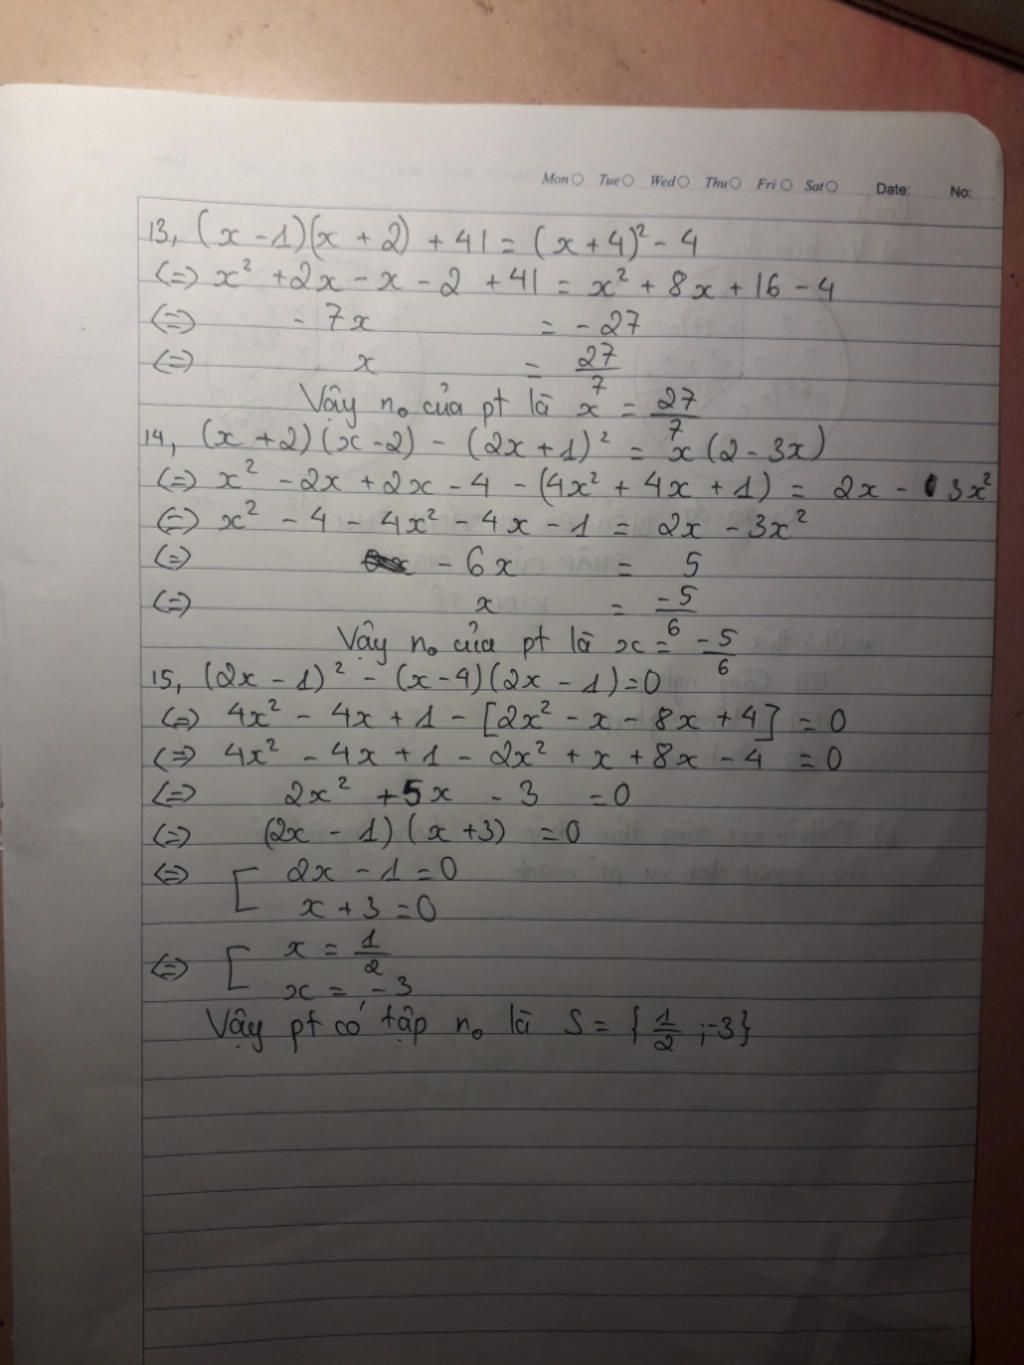 Mon Tue Wed Thu Fri Sat Date: No:
13, (x - 1)(x + 2) + 41 = (x + 4)² - 4
(=) x² + 2x - x - 2 + 41 = x² + 8x + 16 - 4
(=) - 7x = - 27
(=) x = 27/7
Vậy n₀ của pt là x = 27/7
14, (x + 2)(x - 2) - (2x + 1)² = x(2 - 3x)
(=) x² - 2x + 2x - 4 - (4x² + 4x + 1) = 2x - 3x²
(=) x² - 4 - 4x² - 4x - 1 = 2x - 3x²
(=) - 6x = 5
(=) x = -5/6
Vậy n₀ của pt là x = -5/6
15, (2x - 1)² - (x - 4)(2x - 1) = 0
(=) 4x² - 4x + 1 - [2x² - x - 8x + 4] = 0
(=) 4x² - 4x + 1 - 2x² + x + 8x - 4 = 0
(=) 2x² + 5x - 3 = 0
(=) (2x - 1)(x + 3) = 0
(=) [ 2x - 1 = 0
x + 3 = 0
(=) [ x = 1/2
x = -3
Vậy pt có tập n₀ là S = {1/2 ; -3}